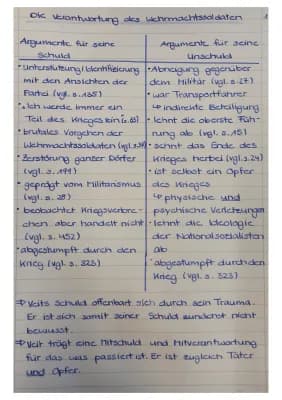 Die Verantwortung des Wehrmachtssoldaten
1
Argumente für seine
Schuld
• Unterstützung/Identifizierung
mit den Ansichten der
Partei (vgl. s. 135)
• „Ich werde immer ein
Teil des Krieges sein"
• brutales Vorgehen der
Wehrmachtssoldaten (vgl. s.
• Zerstörung ganzer Dörfer
(vgl. s. 199)
• geprägt vom Militarismus
(vgl. s. 28)
• beobachtet Kriegsverbre-
chen aber handelt nicht
(vgl. s. 452)
• abgestumpft durch den
Krieg (vgl. s. 323)
Argumente für seine
Unschuld
• Abneigung gegenüber
dem Militär (vgl. s. 27)
• war Transportfahrer
↳ indirekte Beteiligung
• lehnt die oberste Füh-
rung ab (vgl. s. 15)
• sehnt das Ende des
Krieges herbei (vgl. s. 24)
• ist selbst ein Opfer
des Krieges
↳ physische und
psychische Verletzungen
• lehnt die Ideologie
der Nationalsozialisten
ab
• abgestumpft durch den
Krieg (vgl. s. 323)
⇒ Veits Schuld offenbart sich durch sein Trauma.
Er ist sich somit seiner Schuld zunächst nicht
bewusst.
⇒ Veit trägt eine Mitschuld und Mitverantwortung
für das was passiert ist. Er ist zugleich Täter
und Opfer.